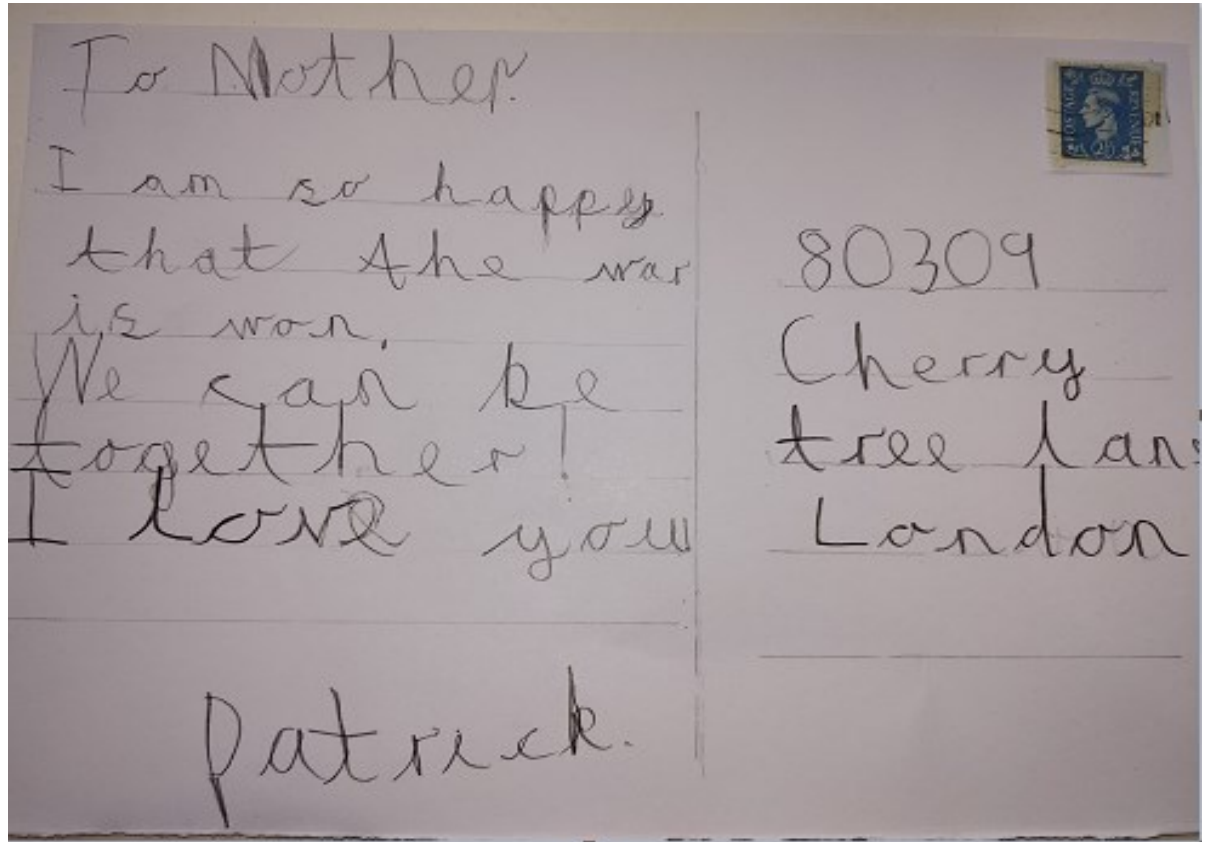 To Mother.
I am so happy
that the war
is won.
We can be
together!
I love you
Patrick.
POSTAGE
REVENUE
2½
80309
Cherry
tree lane
London